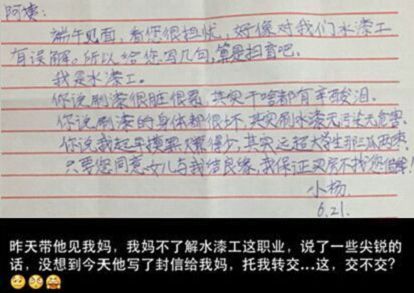 阿姨:
端午见面,看您很担忧,好像对我们水漆工
有误解。所以给您写几句,算是扫盲吧。
我是水漆工。
你说刷漆很脏很累,其实干啥都有辛酸泪。
你说刷漆的身体都很坏,其实刷水漆无污染无危害。
你说我起早摸黑赚得少,其实远超大学生那三瓜两枣。
只要您同意女儿与我结良缘,我保证买房不找您借
小杨
6.21.
昨天带他见我妈,我妈不了解水漆工这职业,说了一些尖锐的
话,没想到今天他写了封信给我妈,托我转交...这,交不交?